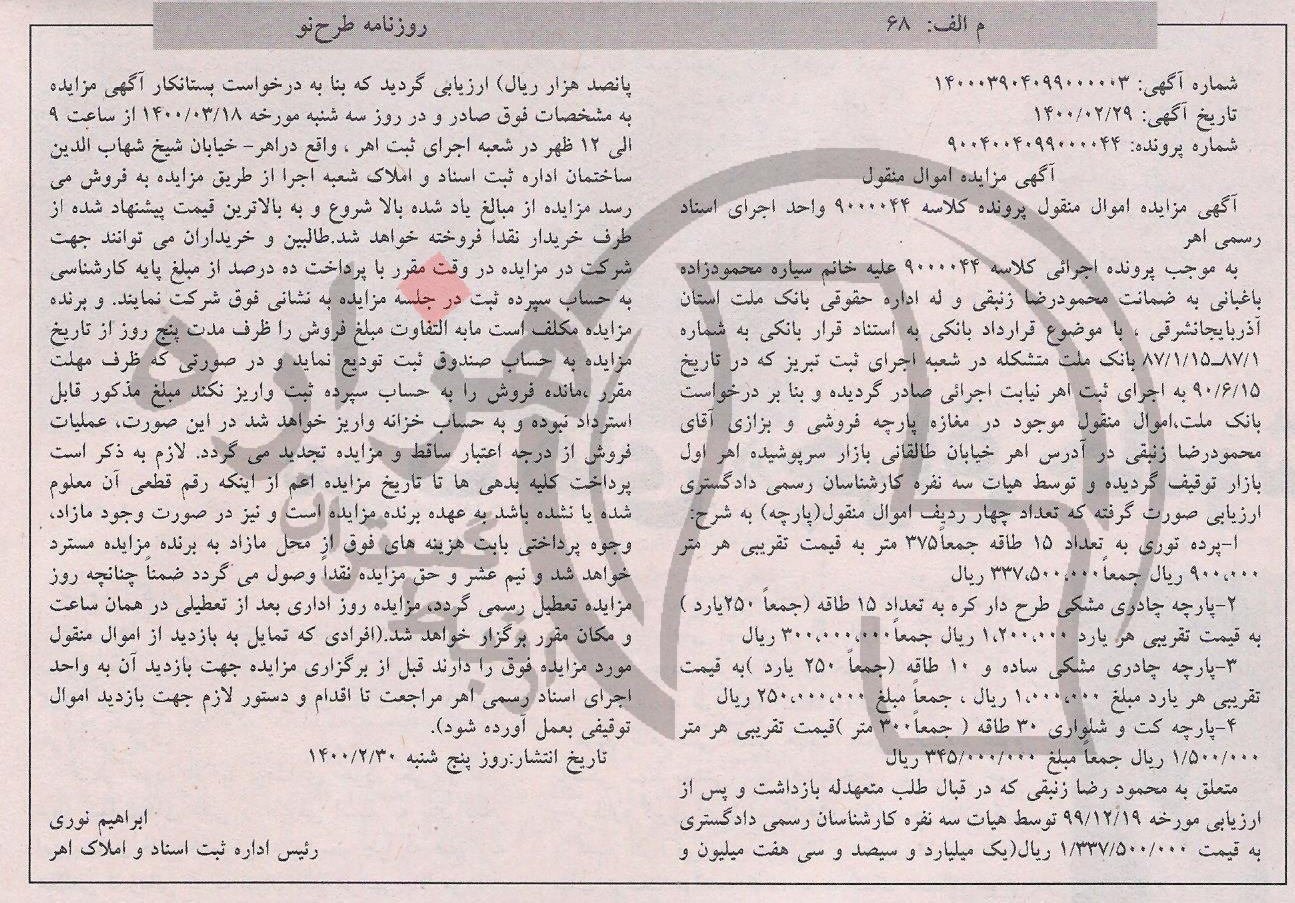 م الف: ۶۸
روزنامه طرح‌نو
شماره آگهی: ۱۴۰۰۰۳۹۰۴۰۹۹۰۰۰۰۰۳
تاریخ آگهی: ۱۴۰۰/۰۲/۲۹
شماره پرونده: ۹۰۰۴۰۰۴۰۹۹۰۰۰۰۴۴
آگهی مزایده اموال منقول
آگهی مزایده اموال منقول پرونده کلاسه ۹۰۰۰۰۴۴ واحد اجرای اسناد
رسمی اهر
به موجب پرونده اجرائی کلاسه ۹۰۰۰۰۴۴ علیه خانم سیاره محمودزاده
باغبانی به ضمانت محمودرضا زنبقی و له اداره حقوقی بانک ملت استان
آذربایجانشرقی ، با موضوع قرارداد بانکی به استناد قرار بانکی به شماره
۸۷/۱ـ۸۷/۱/۱۵ بانک ملت متشکله در شعبه اجرای ثبت تبریز که در تاریخ
۹۰/۶/۱۵ به اجرای ثبت اهر نیابت اجرائی صادر گردیده و بنا بر درخواست
بانک ملت،اموال منقول موجود در مغازه پارچه فروشی و بزازی آقای
محمودرضا زنبقی در آدرس اهر خیابان طالقانی بازار سرپوشیده اهر اول
بازار توقیف گردیده و توسط هیات سه نفره کارشناسان رسمی دادگستری
ارزیابی صورت گرفته که تعداد چهار ردیف اموال منقول(پارچه) به شرح:
۱-پرده توری به تعداد ۱۵ طاقه جمعاً۳۷۵ متر به قیمت تقریبی هر متر
۹۰۰،۰۰۰ ریال جمعاً۳۳۷،۵۰۰،۰۰۰ ریال
۲-پارچه چادری مشکی طرح دار کره به تعداد ۱۵ طاقه (جمعاً ۲۵۰یارد )
به قیمت تقریبی هر یارد ۱،۲۰۰،۰۰۰ ریال جمعاً۳۰۰،۰۰۰،۰۰۰ ریال
۳-پارچه چادری مشکی ساده و ۱۰ طاقه (جمعاً ۲۵۰ یارد )به قیمت
تقریبی هر یارد مبلغ ۱،۰۰۰،۰۰۰ ریال ، جمعاً مبلغ ۲۵۰،۰۰۰،۰۰۰ ریال
۴-پارچه کت و شلواری ۳۰ طاقه ( جمعاً۳۰۰ متر )قیمت تقریبی هر متر
۱/۵۰۰/۰۰۰ ریال جمعاً مبلغ ۳۴۵/۰۰۰/۰۰۰ ریال
متعلق به محمود رضا زنبقی که در قبال طلب متعهدله بازداشت و پس از
ارزیابی مورخه ۹۹/۱۲/۱۹ توسط هیات سه نفره کارشناسان رسمی دادگستری
به قیمت ۱/۳۳۷/۵۰۰/۰۰۰ ریال(یک میلیارد و سیصد و سی هفت میلیون و
پانصد هزار ریال) ارزیابی گردید که بنا به درخواست بستانکار آگهی مزایده
به مشخصات فوق صادر و در روز سه شنبه مورخه ۱۴۰۰/۰۳/۱۸ از ساعت ۹
الی ۱۲ ظهر در شعبه اجرای ثبت اهر ، واقع دراهر- خیابان شیخ شهاب الدین
ساختمان اداره ثبت اسناد و املاک شعبه اجرا از طریق مزایده به فروش می
رسد مزایده از مبالغ یاد شده بالا شروع و به بالاترین قیمت پیشنهاد شده از
طرف خریدار نقدا فروخته خواهد شد.طالبین و خریداران می توانند جهت
شرکت در مزایده در وقت مقرر با پرداخت ده درصد از مبلغ پایه کارشناسی
به حساب سپرده ثبت در جلسه مزایده به نشانی فوق شرکت نمایند. و برنده
مزایده مکلف است مابه التفاوت مبلغ فروش را ظرف مدت پنج روز از تاریخ
مزایده به حساب صندوق ثبت تودیع نماید و در صورتی که ظرف مهلت
مقرر ،مانده فروش را به حساب سپرده ثبت واریز نکند مبلغ مذکور قابل
استرداد نبوده و به حساب خزانه واریز خواهد شد در این صورت، عملیات
فروش از درجه اعتبار ساقط و مزایده تجدید می گردد. لازم به ذکر است
پرداخت کلیه بدهی ها تا تاریخ مزایده اعم از اینکه رقم قطعی آن معلوم
شده یا نشده باشد به عهده برنده مزایده است و نیز در صورت وجود مازاد،
وجوه پرداختی بابت هزینه های فوق از محل مازاد به برنده مزایده مسترد
خواهد شد و نیم عشر و حق مزایده نقداً وصول می گردد ضمناً چنانچه روز
مزایده تعطیل رسمی گردد، مزایده روز اداری بعد از تعطیلی در همان ساعت
و مکان مقرر برگزار خواهد شد.(افرادی که تمایل به بازدید از اموال منقول
مورد مزایده فوق را دارند قبل از برگزاری مزایده جهت بازدید آن به واحد
اجرای اسناد رسمی اهر مراجعت تا اقدام و دستور لازم جهت بازدید اموال
توقیفی بعمل آورده شود).
تاریخ انتشار:روز پنج شنبه ۱۴۰۰/۲/۳۰
ابراهیم نوری
رئیس اداره ثبت اسناد و املاک اهر